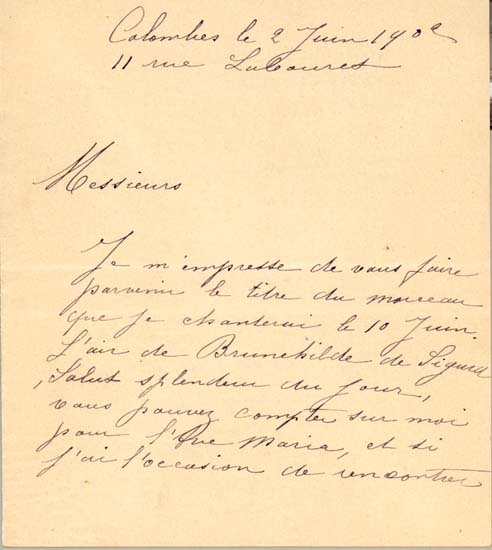 Colombes le 2 Juin 1902
11 rue Labouret
Messieurs
Je m'empresse de vous faire
parvenir le titre du morceau
que je chanterai le 10 Juin.
L'air de Brunehilde de Sigurd
"Salut splendeur du jour",
vous pouvez compter sur moi
pour l'Ave Maria, et si
j'ai l'occasion de rencontrer